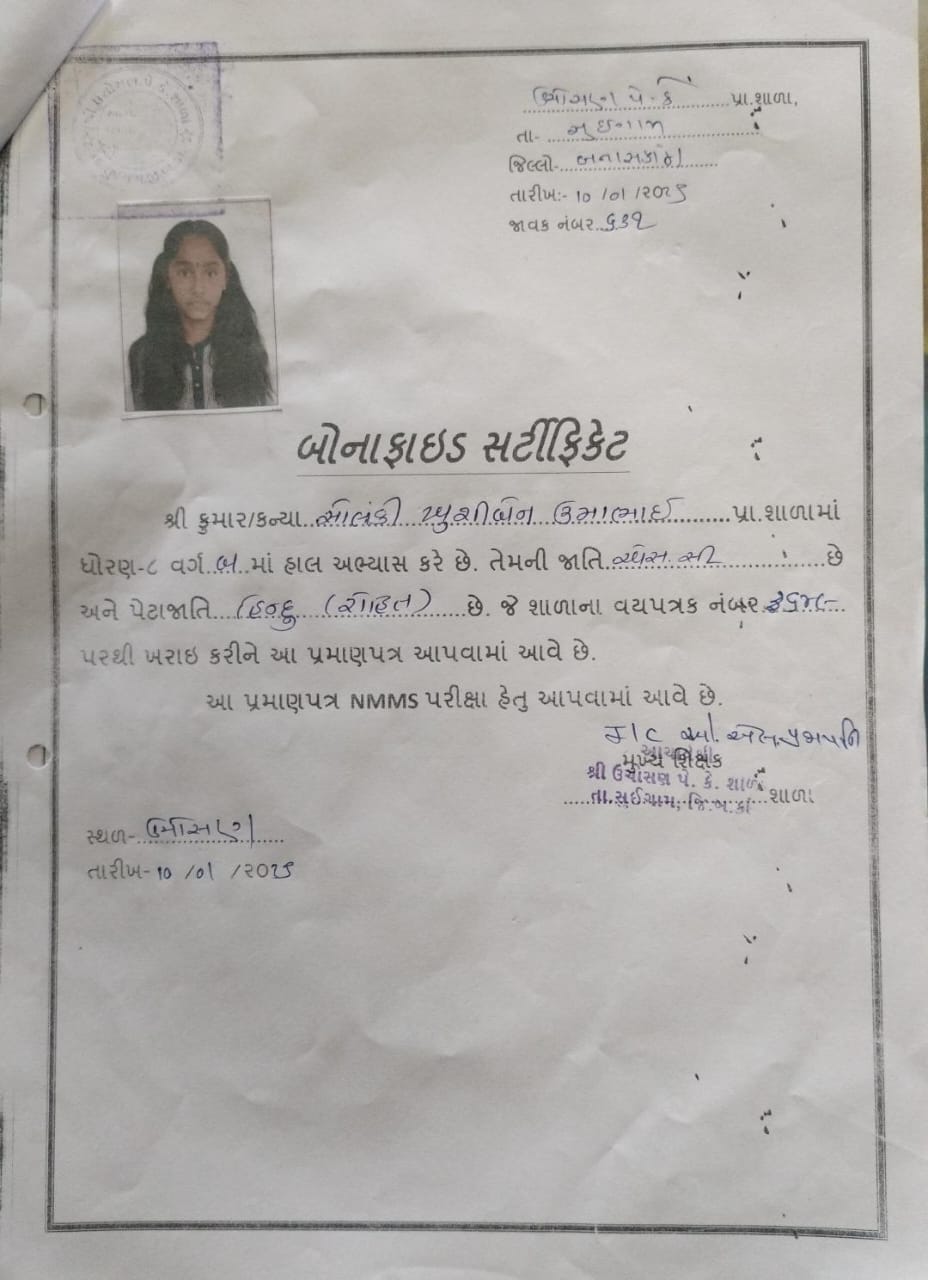 ઉચોસણ પે. કે. પ્રા.શાળા,
તા- સુઇગામ
જિલ્લો- બનાસકાંઠા
તારીખ:- 10 /01 /૨૦૨૬
જાવક નંબર ૬૩૧
બોનાફાઇડ સર્ટીફિકેટ
શ્રી કુમાર/કન્યા સોલંકી ખુશીબેન ઉમાભાઇ પ્રા.શાળામાં
ધોરણ-૮ વર્ગ બ માં હાલ અભ્યાસ કરે છે. તેમની જાતિ એસ.સી છે
અને પેટાજાતિ હિન્દુ (રોહિત) છે. જે શાળાના વયપત્રક નંબર
પરથી ખરાઇ કરીને આ પ્રમાણપત્ર આપવામાં આવે છે.
આ પ્રમાણપત્ર NMMS પરીક્ષા હેતુ આપવામાં આવે છે.
I/C
મુખ્ય શિક્ષક
આચાર્યશ્રી
શ્રી ઉચોસણ પે. કે. શાળા
તા.સુઈગામ, જિ.બ.કાં શાળા
સ્થળ- ઉચોસણ
તારીખ- 10 /01 /૨૦૨૬